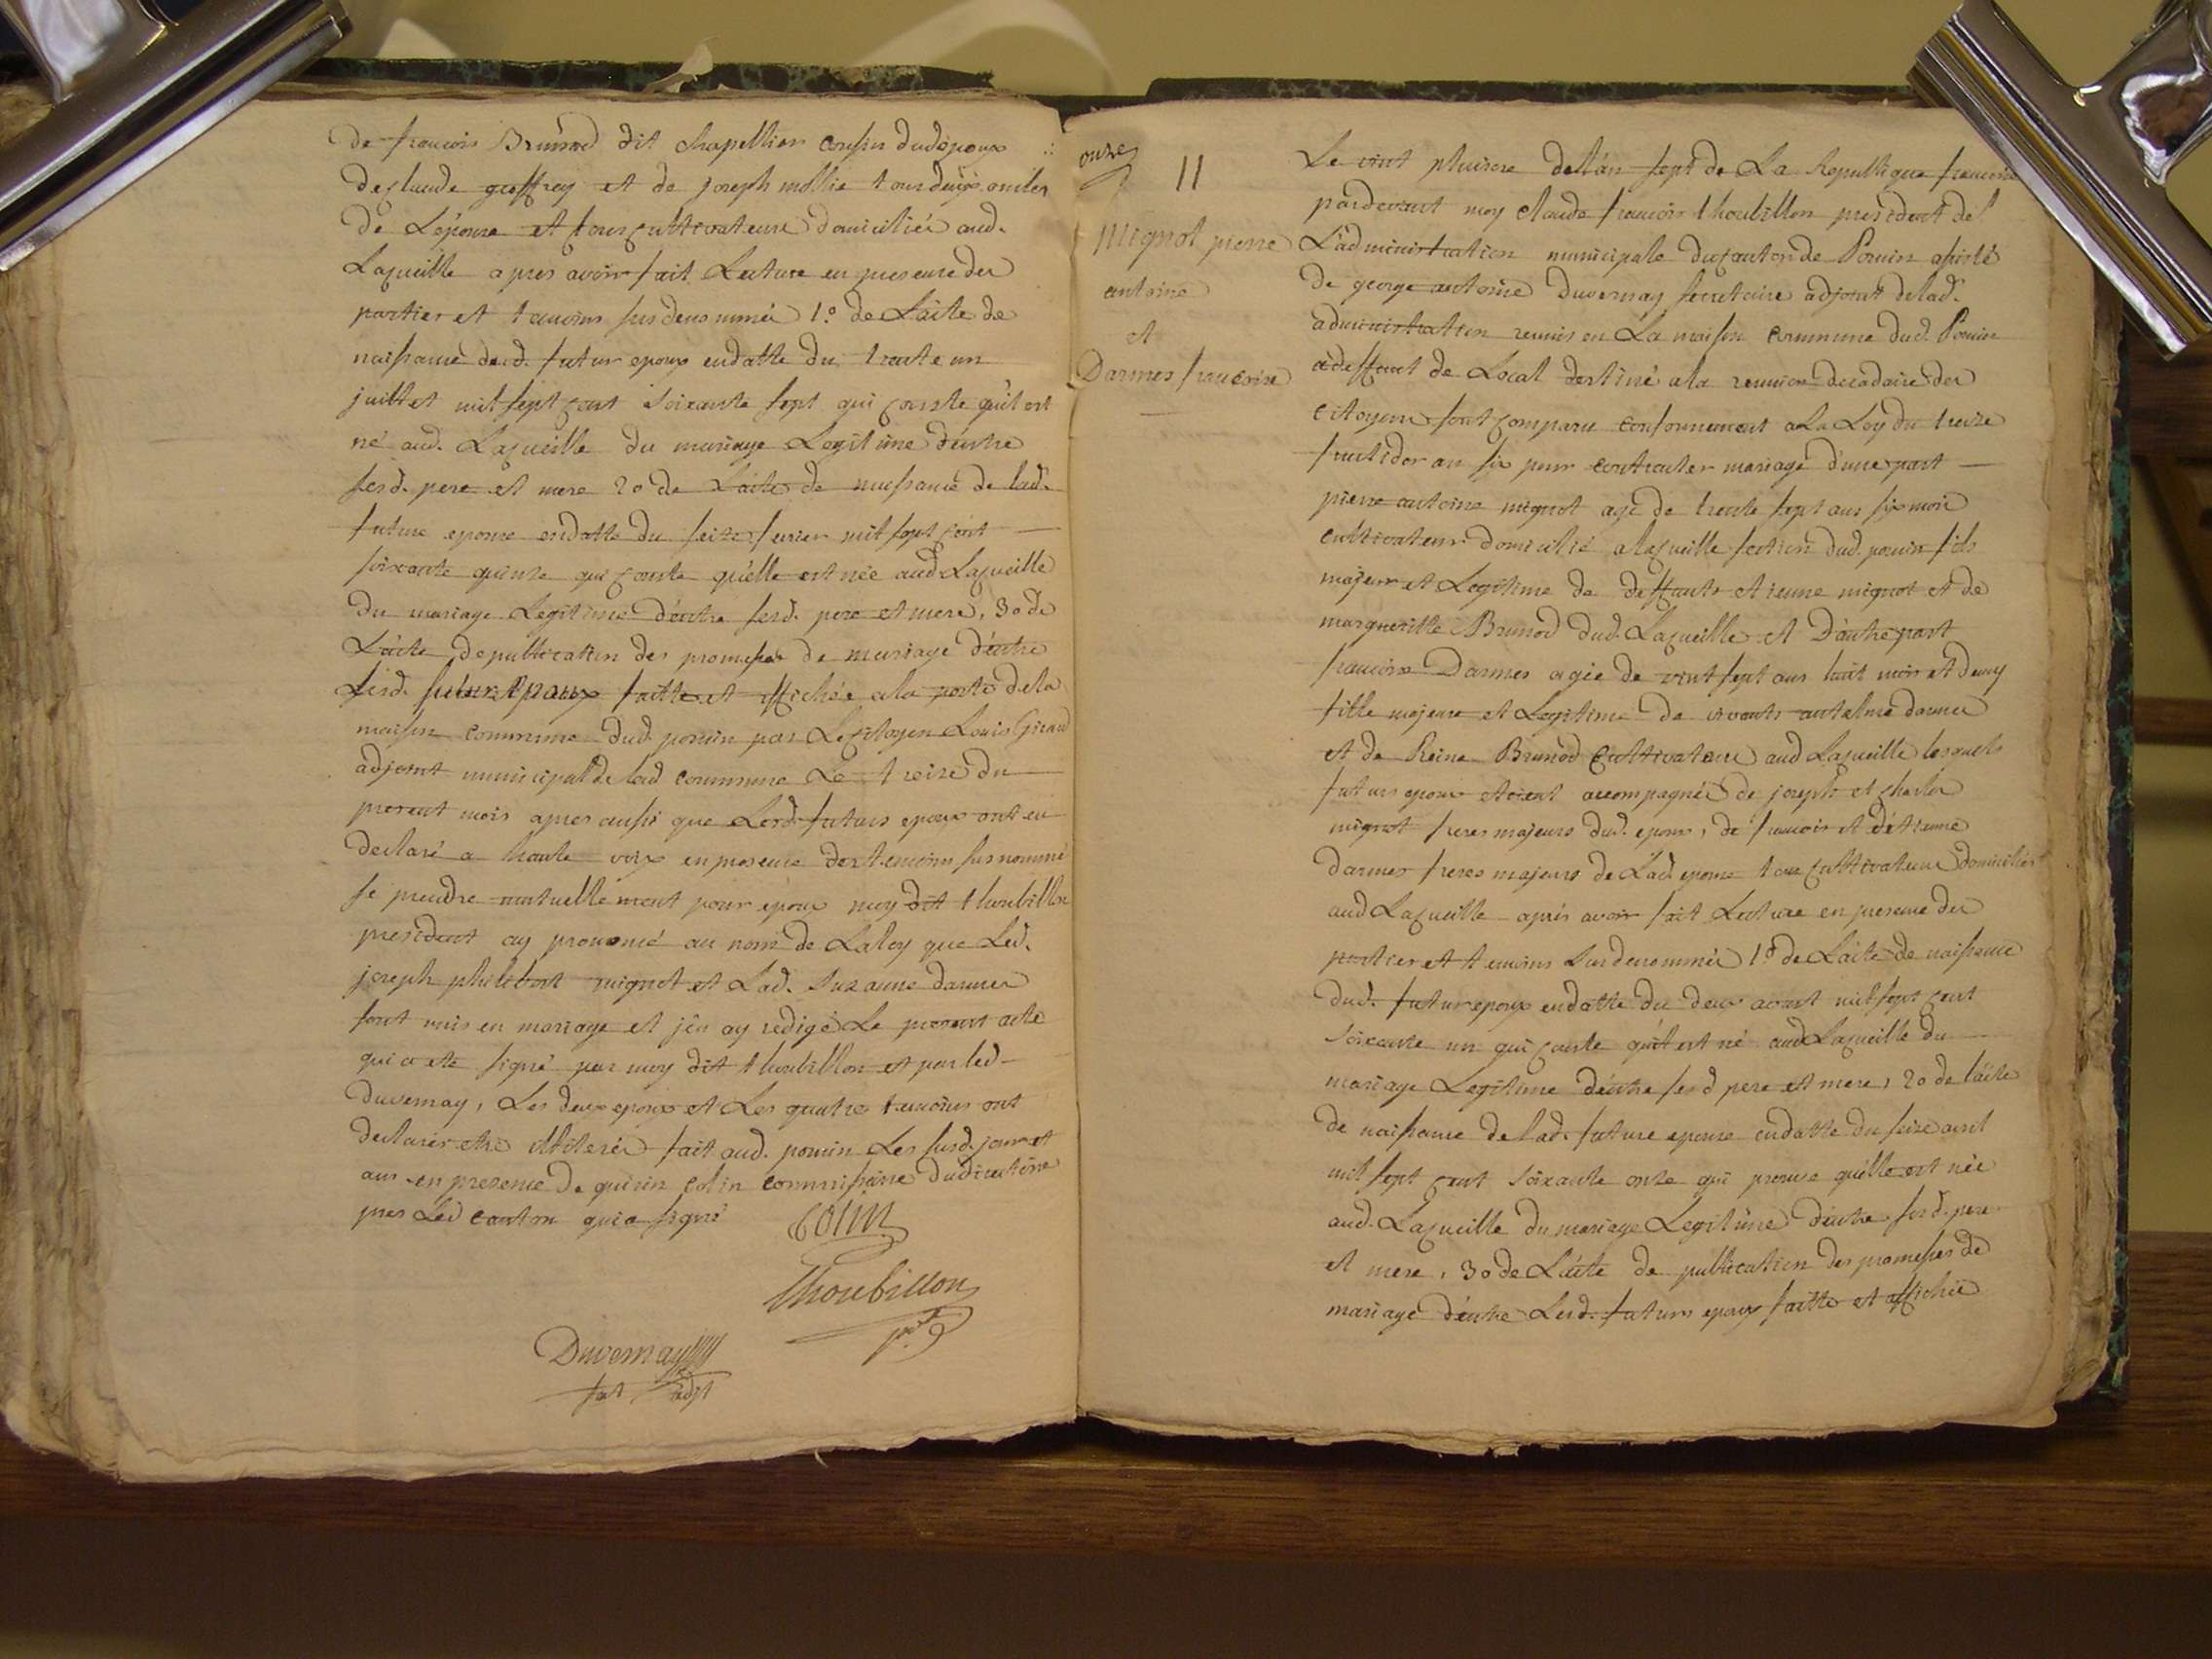 de francois Brunod dit chapellier cousin dudépoux
declaude geoffray et de joseph mollie tous deux oncles
de Lépouse et tous cultivateurs domiciliés aud.
Lacueille apres avoir fait Lecture en presence des
parties et temoins susdenommés 1.º de Lacte de
naissance dud. futur epoux endatte du trente un
juillet mil sept cent soixante sept qui conste quil est
né aud. Lacueille du mariage Legitime dentre
sesd. pere et mere 2o de Lacte de naissance de lad.
future epouse endatte du seize fevrier mil sept cent
soixante quinze qui conste quélle est née aud Lacueille
du mariage Legitime d'entre sesd. pere et mere, 3o de
Lácte depublication des promesses de mariage d'entre
Lesd. futurs Epoux faitte et affichée ala porte dela
maison commune dud. poncin par Le citoyen Louis Giraud
adjoint municipal de lad commune Le treize du
present mois apres aussi que Lesd. futurs epoux ont eu
declaré a haute voix en presence des temoins susnommé
se prendre mutuellement pour epoux moy dit thoubillon
president ay prononcé au nom de Laloy que Led.
joseph philibert mignot et Lad. Suzanne darmes
sont unis en mariage et jén ay redigé Le present acte
qui a eté signé par moy dit thoubillon et par led
Duvernay, Les deux epoux et Les quatres temoins ont
declarés etre illiterés fait aud. poncin Les susd. jour et
ans en presence de quirin colin commissaire dudirectoire
pres Led canton qui a signé
Colin
Thoubillon
pt
Duvernay
adjt
onze
11
Mignot pierre
antoine
et
Darmes francoise
Le vint pluviose delán sept de La Republique francoise
pardevant moy claude francois thoubillon president de
L'administration municipale du canton de Poncin assisté
de george antoine Duvernay secretaire adjoint delad.
administration reunis en La maison commune dud. Poncin
adeffaut de Local destiné ala reunion decadaire des
citoyens sont comparu conformement a La Loy du treize
fructidor an six pour contracter mariage d'une part
pierre antoine mignot agé de trente sept ans six mois
cultivateur domicilié a lacueille section dud. poncin fils
majeur et Legitime de deffunts etienne mignot et de
margueritte Brunod dud. Lacueille et D'autre part
francoise Darmes agée de vint sept ans huit mois et demy
fille majeure et Legitime de vivants antelme darmes
et de Reine Brunod cultivateurs aud Lacueille lesquels
futurs epoux etoient accompagnés de joseph et charles
mignot freres majeurs dud. epoux, de francois et détienne
darmes freres majeurs de Lad. epouse tous cultivateurs domiciliés
aud Lacueille aprés avoir fait Lecture en presence des
parties et temoins Susdenommés 1º de Lácte de naissance
dud. futur epoux endatte du deux aoust mil sept cent
soixante un qui conste quil est né aud Lacueille du
mariage Legitime dentre sesd pere et mere, 2o de lácte
de naissance de lad. future epouse endatte du seize avril
mil sept cent soixante onze qui prouve quélle est née
aud. Lacueille du mariage Legitime D'entre sesd. pere
et mere, 3o de Lácte de publication des promesses de
mariage d'entre Lesd. futurs epoux faitte et affichée